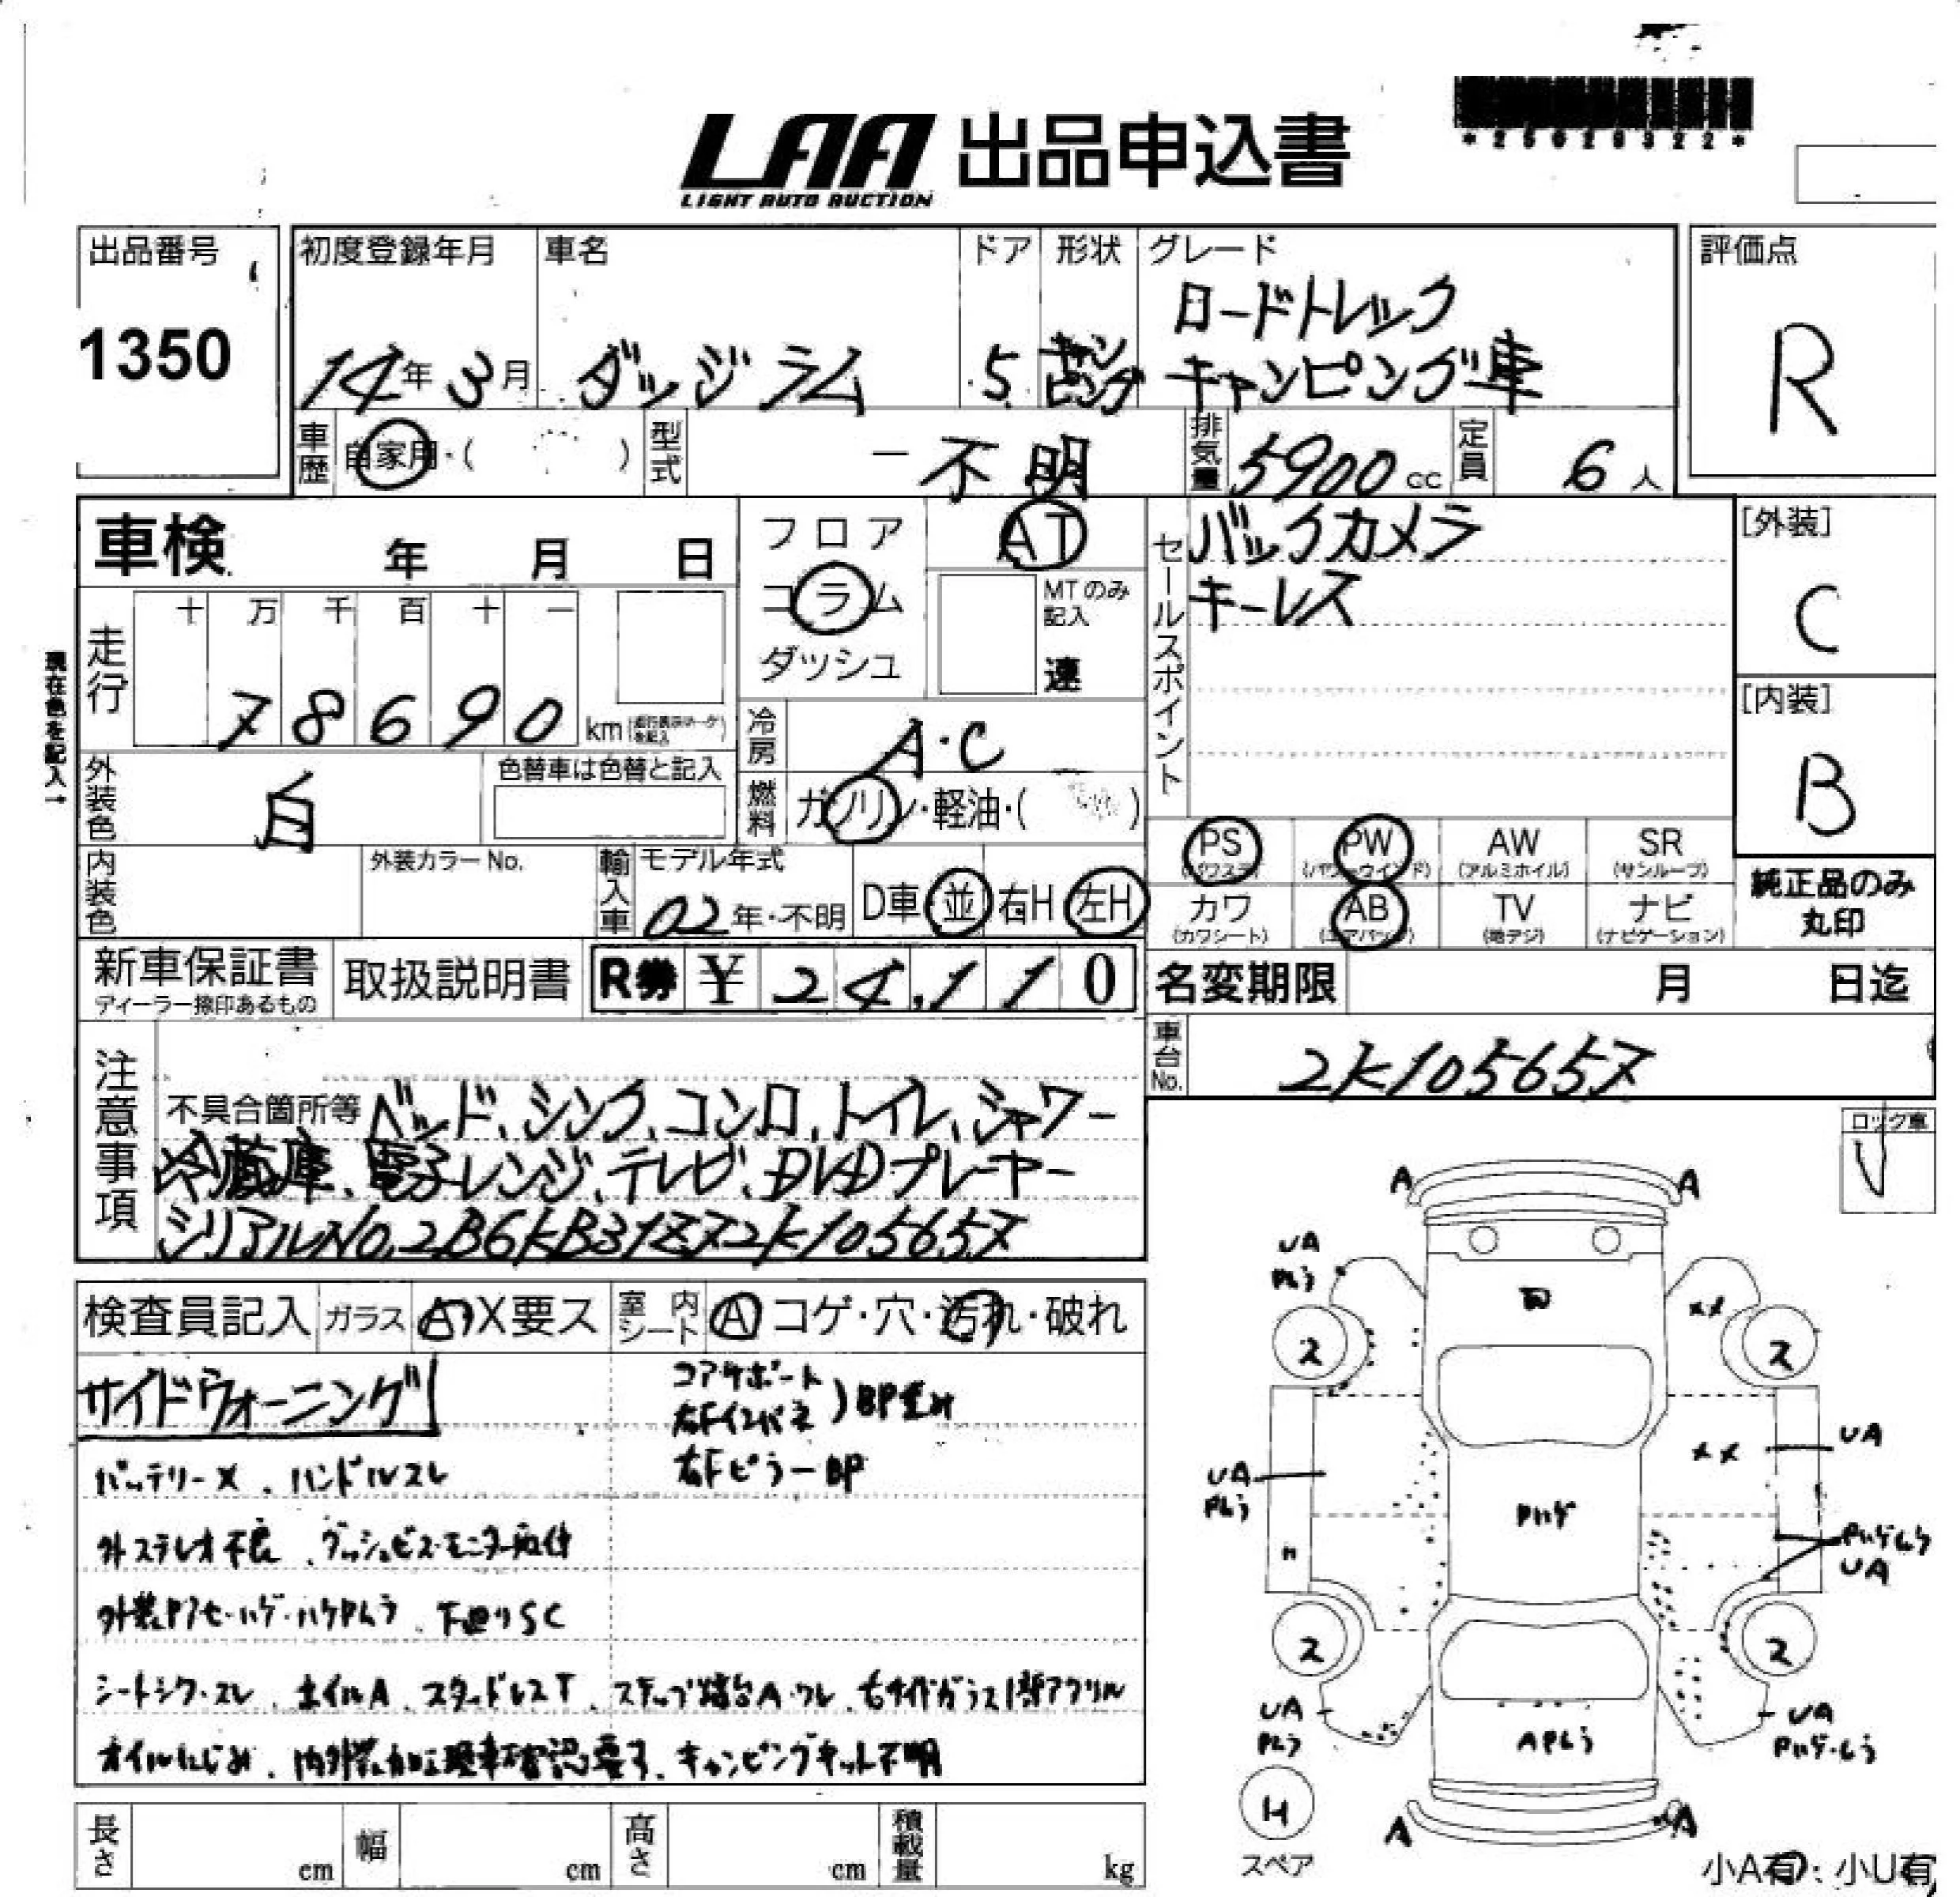 LAA 出品申込書
LIGHT AUTO AUCTION
*25028322*
出品番号
1350
初度登録年月
14年3月
車名
ダッジ ラム
ドア
5
形状
キャンピング
グレード
ロードトレック
キャンピング車
評価点
R
車歴
自家用・( )
型式
ー 不明
排気量
5900 cc
定員
6 人
車検 年 月 日
走行
十 万 千 百 十 一
7 8 6 9 0 km
現在色を記入→
外装色
白
色替車は色替と記入
内装色
外装カラーNo.
フロア
コラム
ダッシュ
AT
MTのみ
記入
速
冷房
A・C
燃料
ガソリン・軽油・( )
輸入車
モデル年式
02年・不明
D車 並 右H 左H
セールスポイント
バックカメラ
キーレス
[外装]
C
[内装]
B
PS PW AW SR
(パワステ) (パワーウインド) (アルミホイル) (サンルーフ)
カワ AB TV ナビ
(カワシート) (エアバッグ) (地デジ) (ナビゲーション)
純正品のみ
丸印
新車保証書
ディーラー捺印あるもの
取扱説明書
R券 ¥ 24,110
名変期限 月 日迄
車台No.
2K105657
注意事項
不具合箇所等 ベッド、シンク、コンロ、トイレ、シャワー
冷蔵庫、電子レンジ、テレビ、DVDプレーヤー
シリアルNo,2B6KB31Z72K105657
ロック車
検査員記入 ガラス A X要ス 室内シート A コゲ・穴・汚れ・破れ
サイドウォーニング
コアサポート
右Fインパネ
BP歪み
右Fピラー BP
バッテリーX、ハンドルスレ
外ステレオ不良、ダッシュビス・モニター取付
外装Pアセ・ハゲ・ハケPムラ、下廻りSC
シートシワ・スレ、ホイルA、スタッドレスT、ステップ踏台A・ワレ、右サイドガラス1部アクリル
オイルにじみ、内外装加工現車確認要す、キャンピングキット不明
長さ cm 幅 cm 高さ cm 積載量 kg
A A
UA
Pムラ
XX
2 2
UA
Pムラ
XX
UA
Pハゲ
Pハゲムラ
UA
2 2
UA
Pムラ
APムラ
UA
Pハゲ・ムラ
H
スペア
A A
小A有・小U有